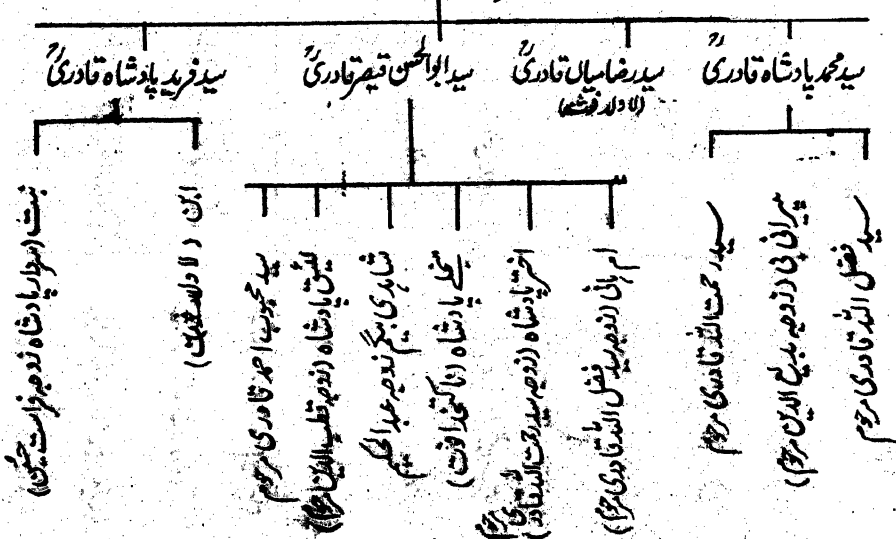 سید محمد پادشاہ قادریؒ
سید رضا میاں قادریؒ
(لا ولد فوت شد)
سید ابوالحسن قیصر قادریؒ
سید فرید پادشاہ قادریؒ
سید فضل اللہ قادری مرحوم
میرانی بی (زوجہ بدیع الدین مرحوم)
سید رحمت اللہ قادری مرحوم
ام ہانی (زوجہ سید فضل اللہ قادری مرحوم)
اختر پادشاہ (زوجہ سید رحمت اللہ قادری مرحوم)
منجلے پادشاہ (ناکتخدا فوت)
شاہدی بیگم زوجہ عبدالحکیم
لئیق پادشاہ (زوجہ قطب الدین مرحوم)
سید محبوب احمد قادری مرحوم
ابن (لا ولد
بنت (سردار پادشاہ زوجہ فراست حسین)